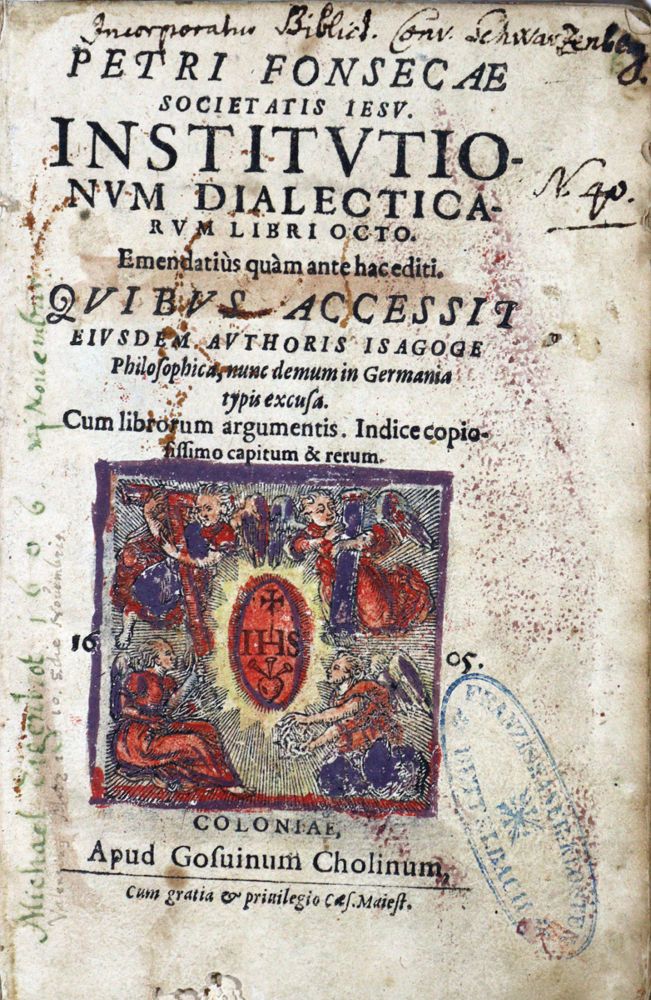 Incorporatus Biblict. Conv. Schwarzenberg.
PETRI FONSECAE
SOCIETATIS IESV.
INSTITVTIO-
NVM DIALECTICA-
RVM LIBRI OCTO.
N. 40.
Emendatiùs quàm ante hac editi.
QVIBVS ACCESSIT
EIVSDEM AVTHORIS ISAGOGE
Philosophica, nunc demum in Germania
typis excusa.
Cum librorum argumentis. Indice copio-
sissimo capitum & rerum.
IHS
16 05.
COLONIAE,
Apud Gosuinum Cholinum,
Cum gratia & priuilegio Cæs. Maiest.
Michael 1606 Nouembris
FRANZISKANER-KLOSTER
DETTELBACH